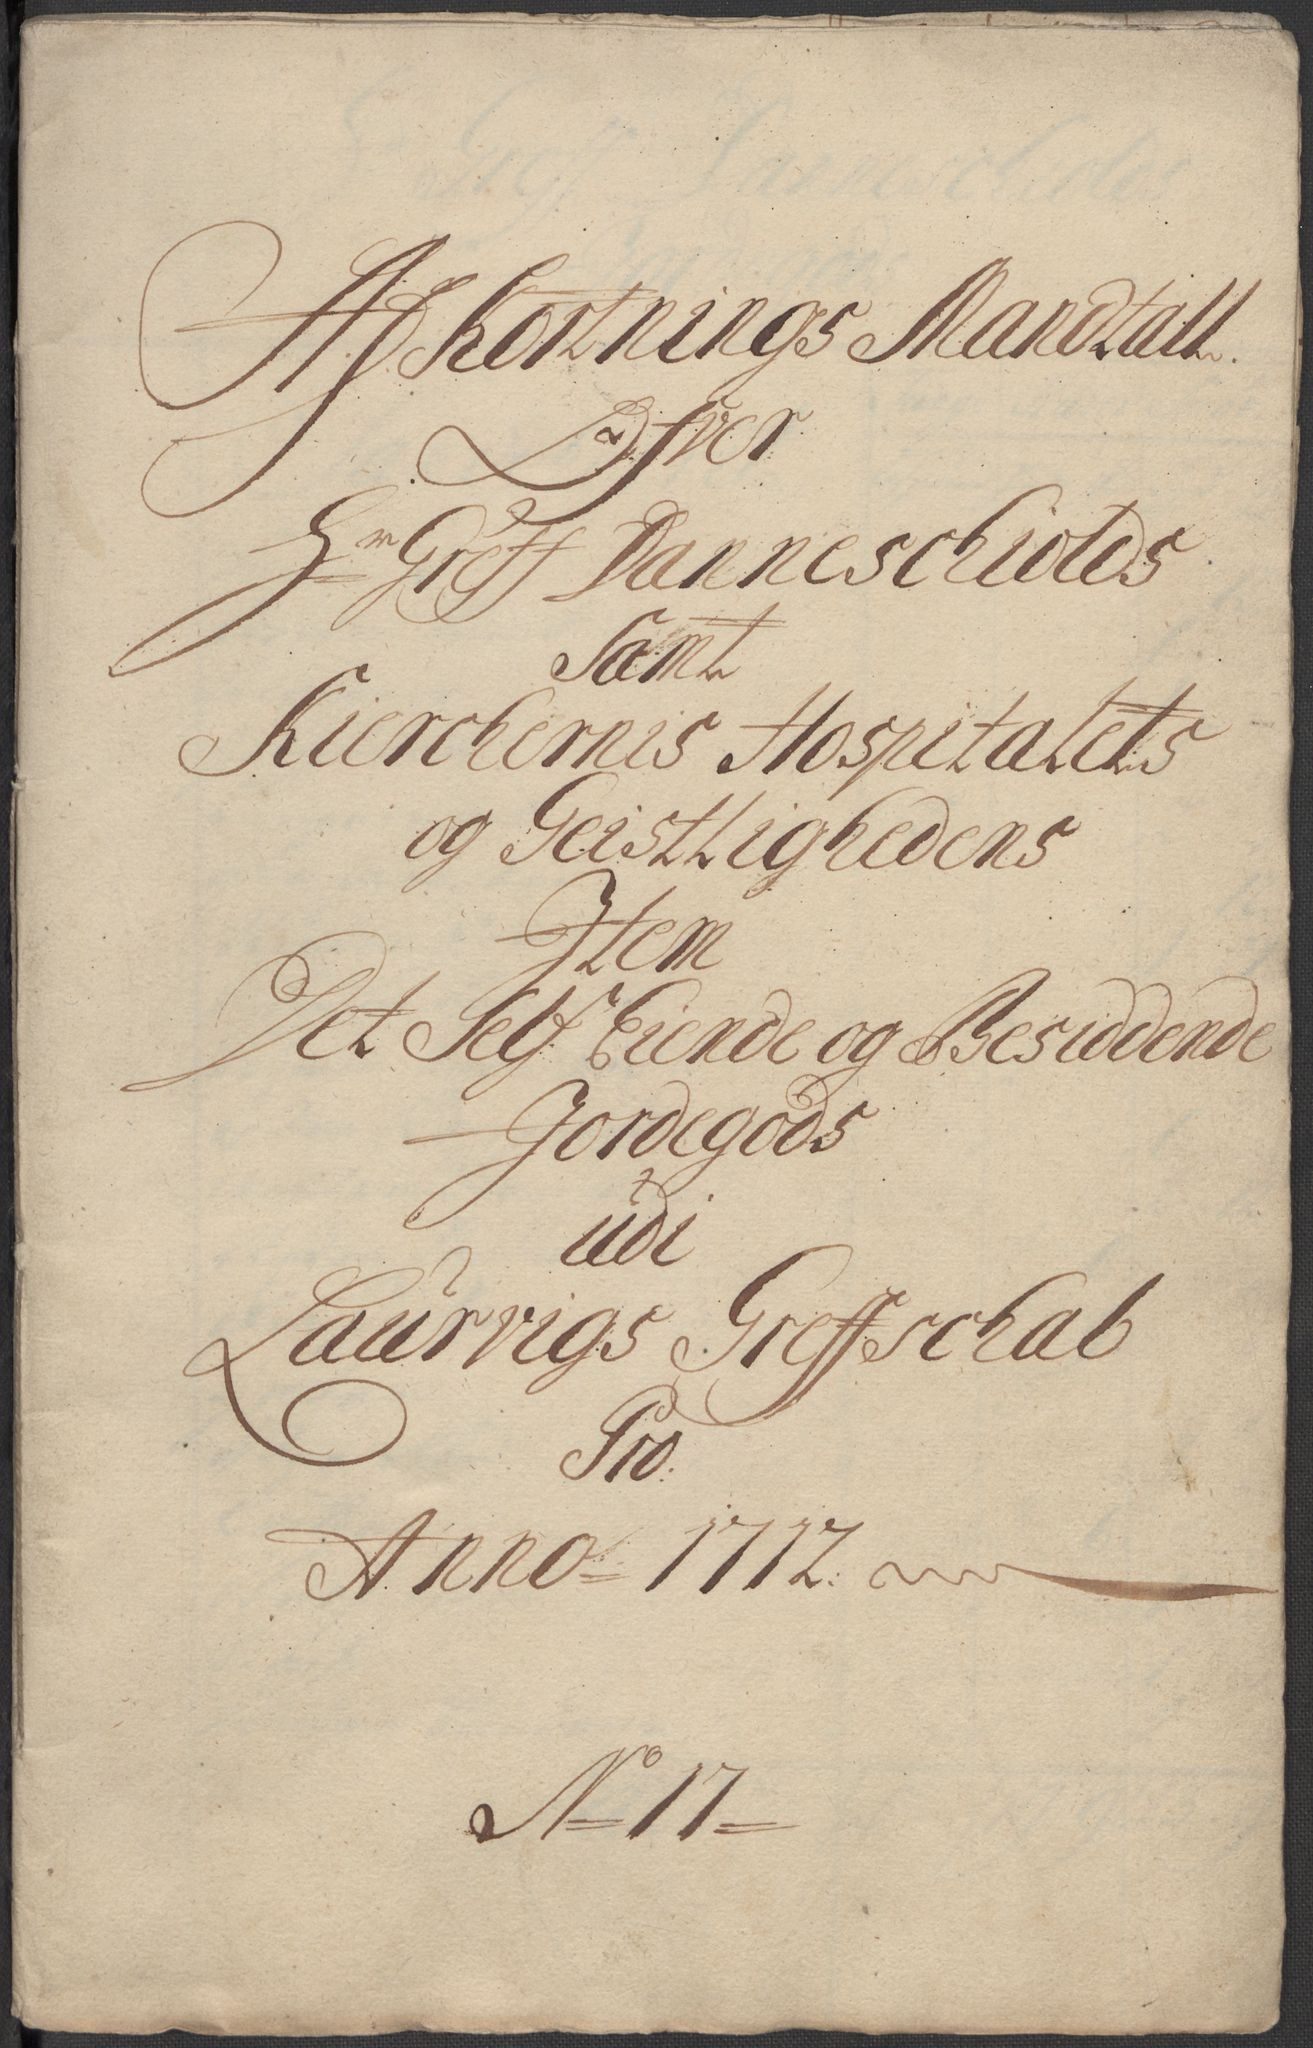 Afkortnings Mandtall.
Ofver
Hr Greff Danneschiolds
Samt
Kierchernis Hospitalets
og Geistlighedens
Item
Det Self Eiende og Besiddende
Jordegods
udi
Laurvigs Greffschab
Pro.
Anno = 1712.
No 17